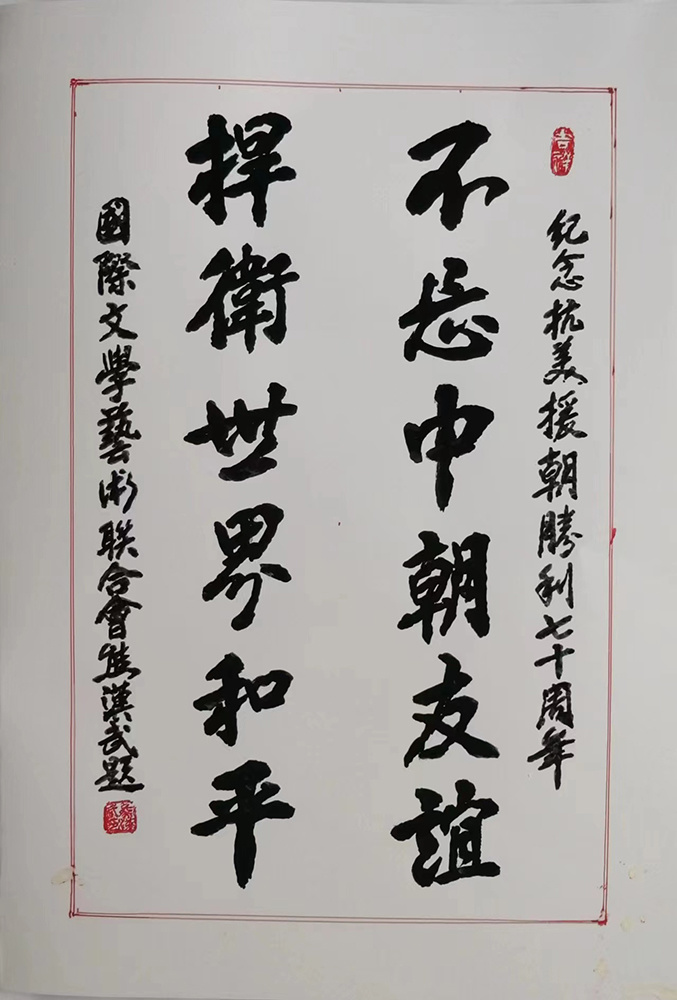 吉祥
纪念抗美援朝勝利七十周年
不忘中朝友誼
捍衛世界和平
國際文學藝術联合會熊漢武題